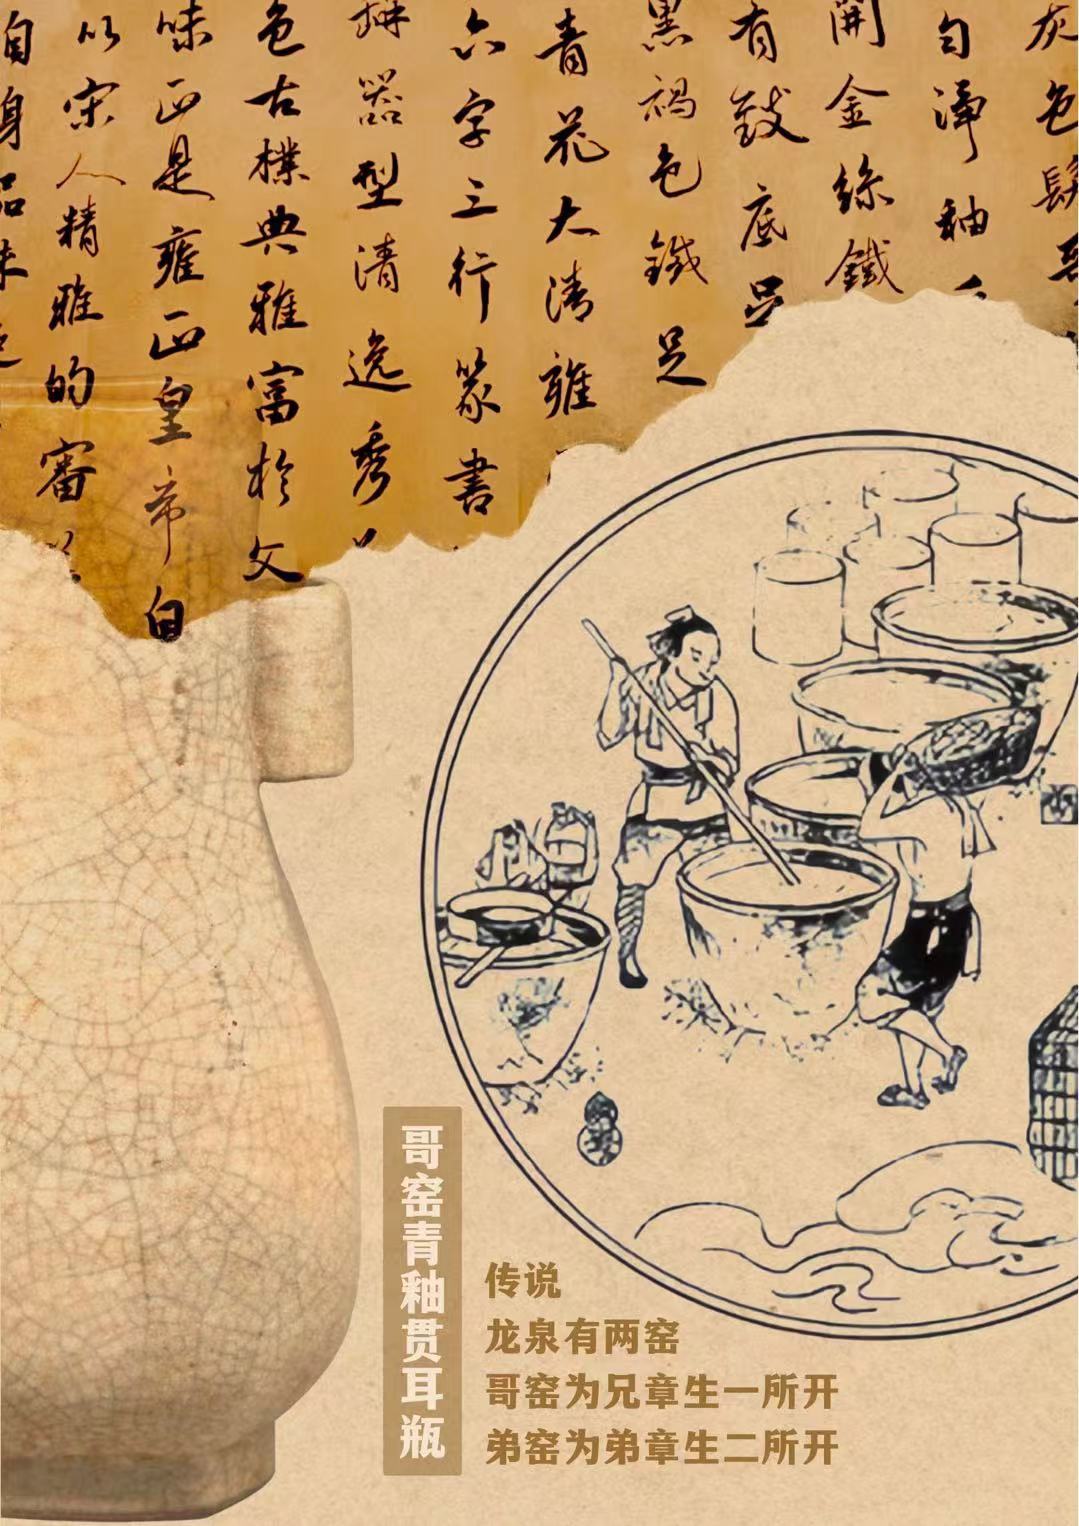 灰色髹
匀淨釉
開金絲鐵
有鼓底足
黑褐色鐵足
青花大清雍
六字三行篆書
器型清逸秀
色古樸典雅富於文
味正是雍正皇帝白
以宋人精雅的審
自身品味
哥窑青釉贯耳瓶
传说
龙泉有两窑
哥窑为兄章生一所开
弟窑为弟章生二所开